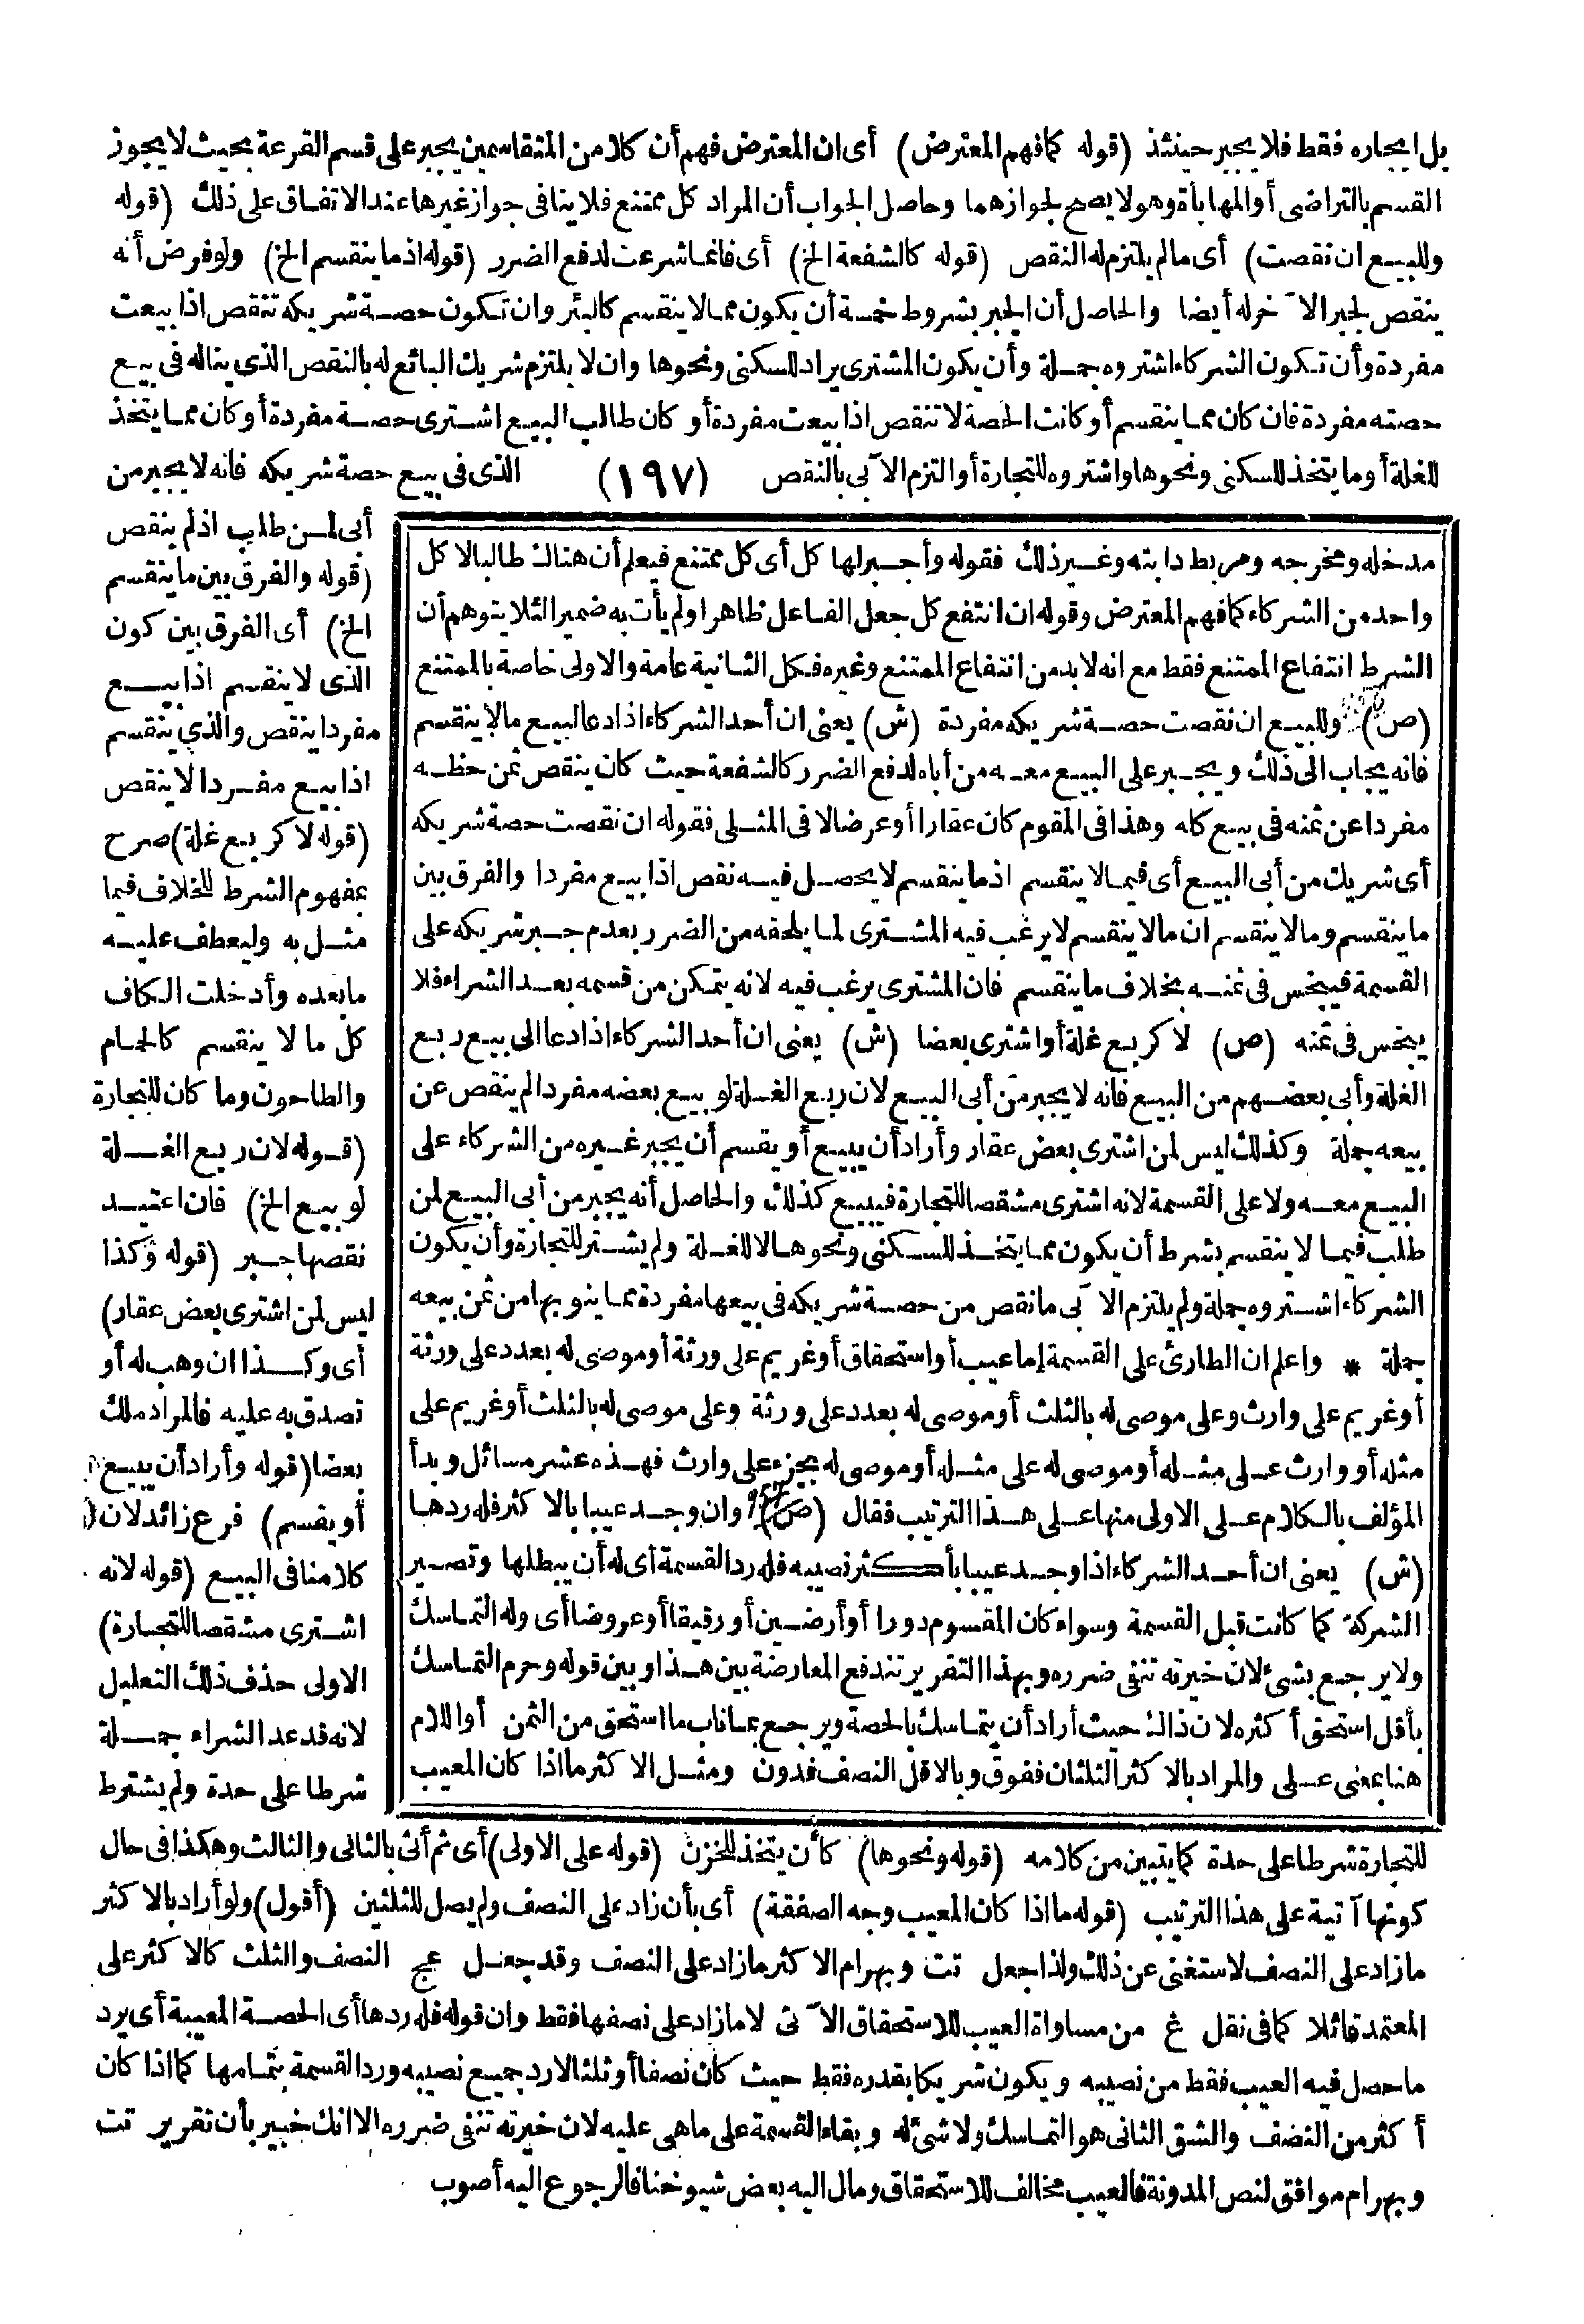 بل ايجاره فقط فلا يجبر حينئذ (قوله كما فهم المعترض) أى ان المعترض فهم أن كلا من المتقاسمين يجبر على قسم القرعة بحيث لا يجوز
القسم بالتراضى أو المهايأة وهو لا يصح لجوازهما وحاصل الجواب أن المراد كل ممتنع فلا ينافى جواز غيرها عند الاتفاق على ذلك (قوله
وللبيع ان نقصت) أى مالم يلتزم له النقص (قوله كالشفعة الخ) أى فانها شرعت لدفع الضرر (قوله اذ ما ينقسم الخ) ولو فرض أنه
ينقص لجبر الآخر له أيضا والحاصل أن الجبر بشروط خمسة أن يكون مما لا ينقسم كالبئر وان تكون حصة شريكه تنقص اذا بيعت
مفردة وأن تكون الشركاء اشتروه جملة وأن يكون المشترى يراد للسكنى ونحوها وان لا يلتزم شريك البائع له بالنقص الذى يناله فى بيع
حصته مفردة فان كان مما ينقسم أو كانت الحصة لا تنقص اذا بيعت مفردة أو كان طالب البيع اشترى حصة مفردة أو كان مما يتخذ
للغلة أو ما يتخذ للسكنى ونحوها واشتروه للتجارة أو التزم الآبى بالنقص (١٩٧) الذى فى بيع حصة شريكه فانه لا يجبر من
أبى لمن طلب اذ لم ينقص
(قوله والفرق بين ما ينقسم
الخ) أى الفرق بين كون
الذى لا ينقسم اذا بيع
مفردا ينقص والذي ينقسم
اذا بيع مفردا لا ينقص
(قوله لا كربع غلة) صرح
بمفهوم الشرط للخلاف فيما
مثل به وليعطف عليه
ما بعده وأدخلت الكاف
كل ما لا ينقسم كالحمام
والطاحون وما كان للتجارة
(قوله لان ربع الغلة
لو بيع الخ) فان اعتيد
نقصها جبر (قوله وكذا
ليس لمن اشترى بعض عقار)
أى وكذا ان وهب له أو
تصدق به عليه فالمراد ملك
بعضا (قوله وأراد أن يبيع
أو يقسم) فرع زائد لان
كلامنا فى البيع (قوله لانه
اشترى مشقصا للتجارة)
الاولى حذف ذلك التعليل
لانه قد عد الشراء جملة
شرطا على حدة ولم يشترط
مدخله ومخرجه ومربط دابته وغير ذلك فقوله وأجبر لها كل أى كل ممتنع فيعلم أن هناك طالبا لا كل
واحد من الشركاء كما فهم المعترض وقوله ان انتفع كل جعل الفاعل ظاهرا ولم يأت به ضميرا لئلا يتوهم أن
الشرط انتفاع الممتنع فقط مع انه لا بد من انتفاع الممتنع وغيره فكل الثانية عامة والاولى خاصة بالممتنع
(ص) وللبيع ان نقصت حصة شريكه مفردة (ش) يعنى ان أحد الشركاء اذا دعا لبيع ما لا ينقسم
فانه يجاب الى ذلك ويجبر على البيع معه من أباه لدفع الضرر كالشفعة حيث كان ينقص ثمن حظه
مفردا عن ثمنه فى بيع كله وهذا فى المقوم كان عقارا أو عرضا لا فى المثلى فقوله ان نقصت حصة شريكه
أى شريك من أبى البيع أى فيما لا ينقسم اذ ما ينقسم لا يحصل فيه نقص اذا بيع مفردا والفرق بين
ما ينقسم وما لا ينقسم ان ما لا ينقسم لا يرغب فيه المشترى لما يلحقه من الضرر بعدم جبر شريكه على
القسمة فيبخس فى ثمنه بخلاف ما ينقسم فان المشترى يرغب فيه لانه يتمكن من قسمه بعد الشراء فلا
يبخس فى ثمنه (ص) لا كربع غلة أو اشترى بعضا (ش) يعنى ان أحد الشركاء اذا دعا الى بيع ربع
الغلة وأبى بعضهم من البيع فانه لا يجبر من أبى البيع لان ربع الغلة لو بيع بعضه مفردا لم ينقص عن
بيعه جملة وكذلك ليس لمن اشترى بعض عقار وأراد أن يبيع أو يقسم أن يجبر غيره من الشركاء على
البيع معه ولا على القسمة لانه اشترى مشقصا للتجارة فيبيع كذلك والحاصل أنه يجبر من أبى البيع لمن
طلب فيما لا ينقسم بشرط أن يكون مما يتخذ للسكنى ونحوها لا للغلة ولم يشتر للتجارة وأن يكون
الشركاء اشتروه جملة ولم يلتزم الآبى ما نقص من حصة شريكه فى بيعها مفردة عما ينوبها من ثمن بيعه
جملة * واعلم ان الطارئ على القسمة إما عيب أو استحقاق أو غريم على ورثة أو موصى له بعدد على ورثة
أو غريم على وارث وعلى موصى له بالثلث أو موصى له بعدد على ورثة وعلى موصى له بالثلث أو غريم على
مثله أو وارث على مثله أو موصى له على مثله أو موصى له بجزء على وارث فهذه عشر مسائل وبدأ
المؤلف بالكلام على الاولى منها على هذا الترتيب فقال (ص) وان وجد عيبا بالاكثر فله ردها
(ش) يعنى ان أحد الشركاء اذا وجد عيبا بأكثر نصيبه فله رد القسمة أى له أن يبطلها وتصير
الشركة كما كانت قبل القسمة وسواء كان المقسوم دورا أو أرضين أو رقيقا أو عروضا أى وله التماسك
ولا يرجع بشئ لان خيرته تنفى ضرره وبهذا التقرير تندفع المعارضة بين هذا وبين قوله وحرم التماسك
بأقل استحق أكثره لان ذاك حيث أراد أن يتماسك بالحصة ويرجع بما ناب ما استحق من الثمن أو اللام
هنا بمعنى على والمراد بالاكثر الثلثان ففوق وبالاقل النصف فدون ومثل الاكثر ما اذا كان المعيب
للتجارة شرطا على حدة كما يتبين من كلامه (قوله ونحوها) كأن يتخذ للخزن (قوله على الاولى) أى ثم أتى بالثانى والثالث وهكذا فى حال
كونها آتية على هذا الترتيب (قوله ما اذا كان المعيب وجه الصفقة) أى بأن زاد على النصف ولم يصل للثلثين (أقول) ولو أراد بالاكثر
ما زاد على النصف لاستغنى عن ذلك ولذا جعل تت وبهرام الاكثر ما زاد على النصف وقد جعل عج النصف والثلث كالاكثر على
المعتمد قائلا كما فى نقل غ من مساواة العيب للاستحقاق الآتى لا ما زاد على نصفها فقط وان قوله فله ردها أى الحصة المعيبة أى يرد
ما حصل فيه العيب فقط من نصيبه ويكون شريكا بقدره فقط حيث كان نصفا أو ثلثا لا رد جميع نصيبه ورد القسمة بتمامها كما اذا كان
أكثر من النصف والشق الثانى هو التماسك ولا شئ له وبقاء القسمة على ما هى عليه لان خيرته تنفى ضرره الا انك خبير بأن تقرير تت
وبهرام موافق لنص المدونة فالعيب مخالف للاستحقاق ومال اليه بعض شيوخنا فالرجوع اليه أصوب